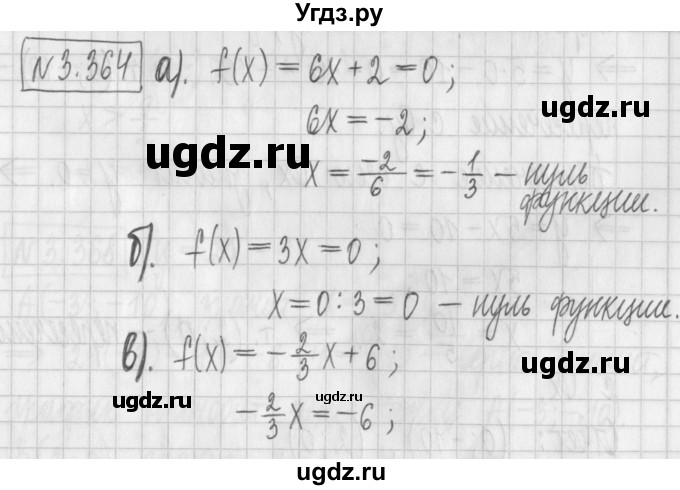 Угдз.ру
№3.364 а). f(x) = 6x + 2 = 0;
6x = -2;
ugdz.ru
ugdz.ru
x = -2/6 = -1/3 - нуль
функции.
б). f(x) = 3x = 0;
x = 0 : 3 = 0 - нуль функции.
в). f(x) = -2/3 x + 6;
ugdz.ru
ugdz.ru
ugdz.ru
-2/3 x = -6;
ugdz.ru